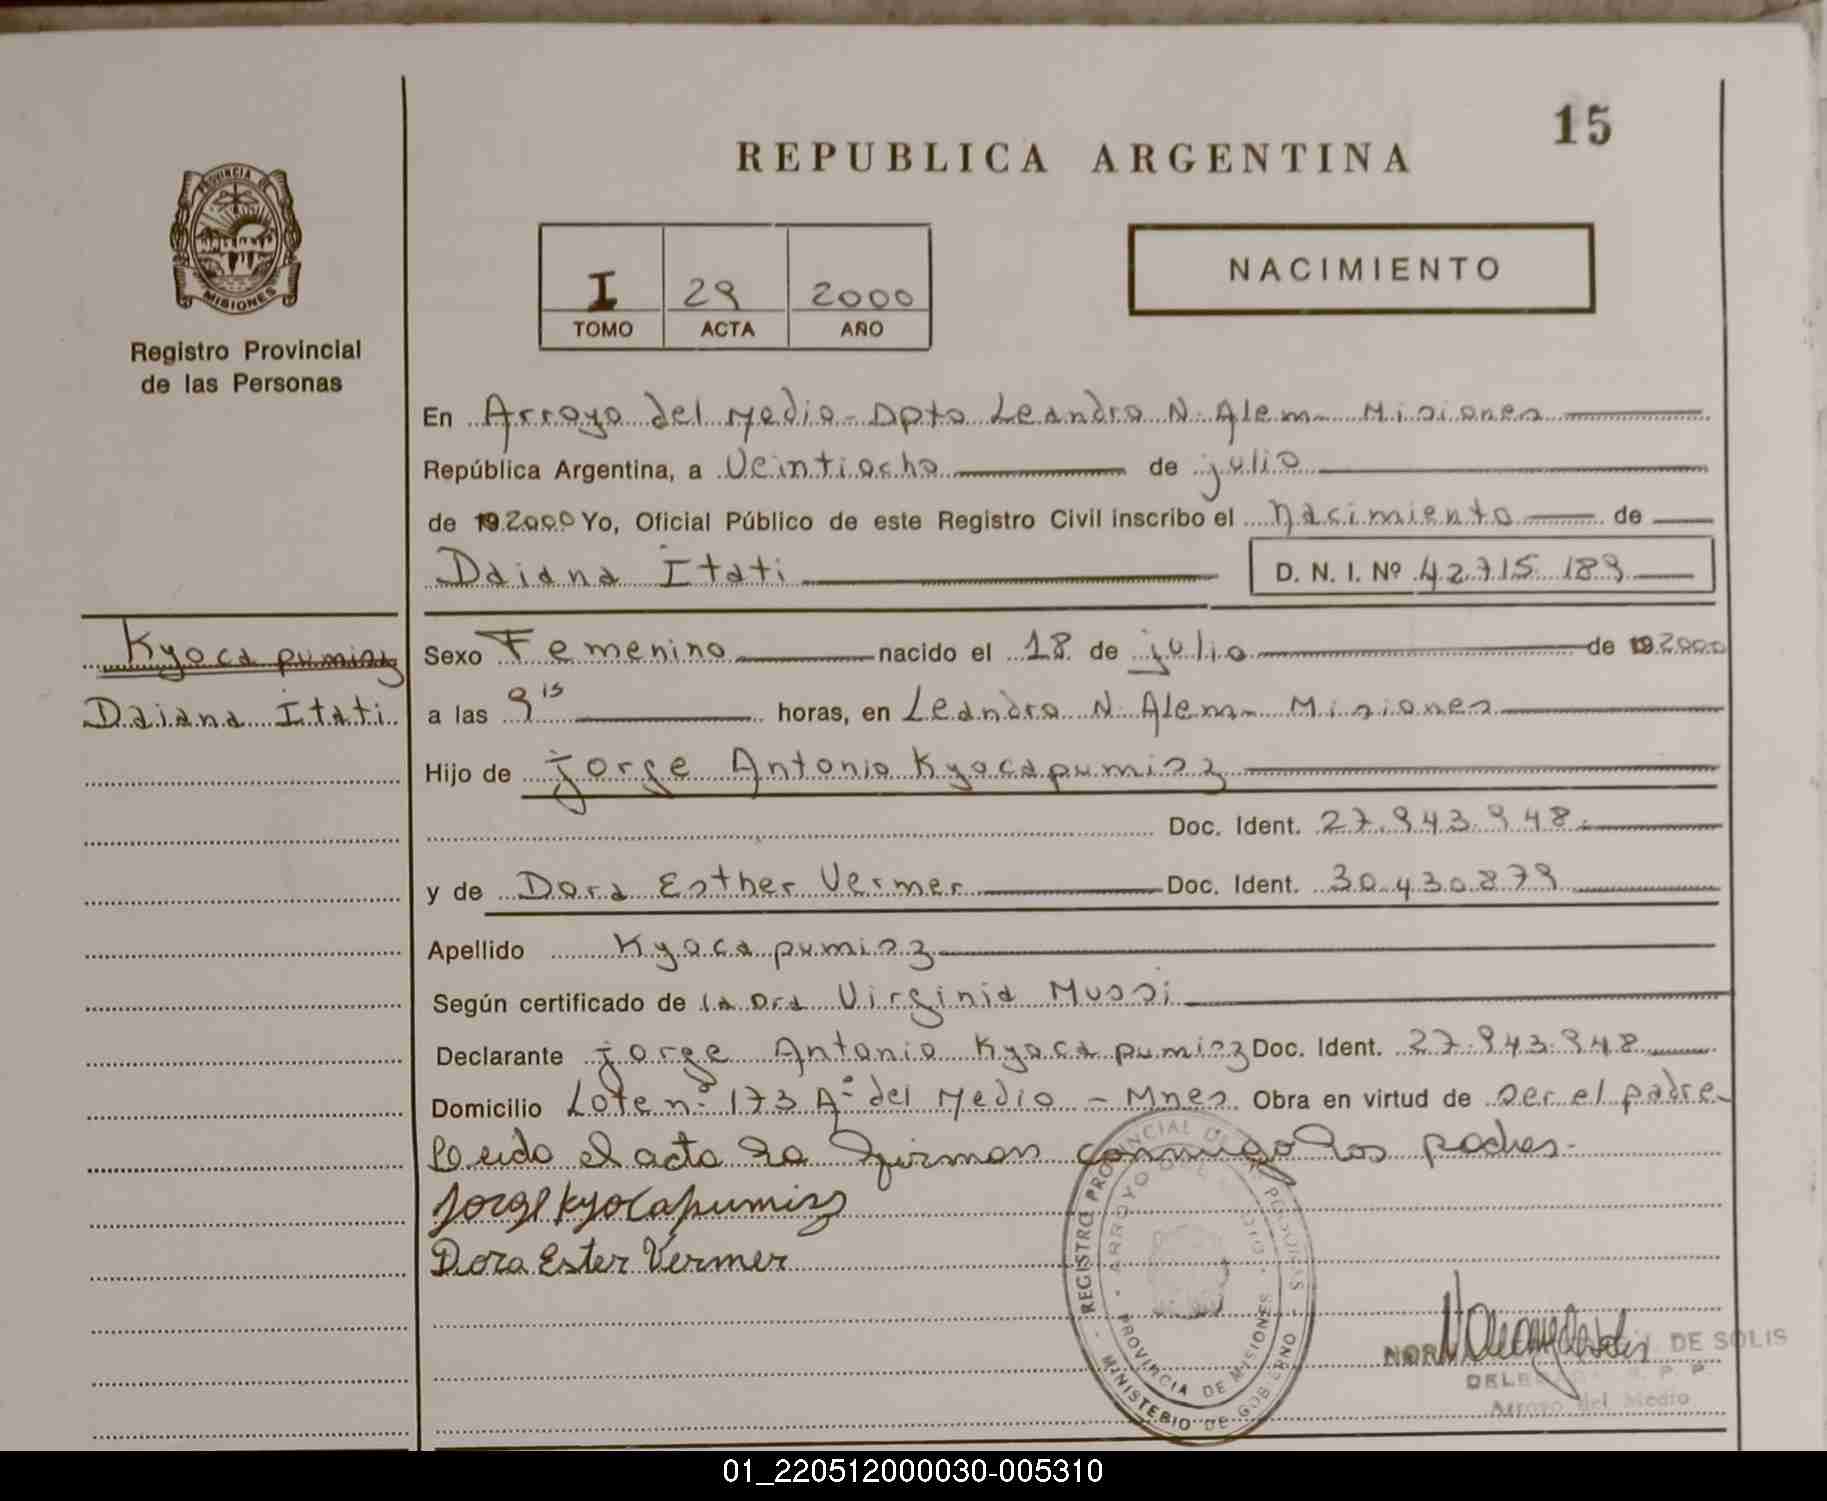 15
REPUBLICA ARGENTINA
PROVINCIA DE
MISIONES
Registro Provincial
de las Personas
I 29 2000
TOMO ACTA AÑO
NACIMIENTO
En Arroyo del Medio - Dpto Leandro N. Alem - Misiones
República Argentina, a Veintiocho de julio
de 192000 Yo, Oficial Público de este Registro Civil inscribo el nacimiento de
Daiana Itati D. N. I. Nº 42.715.189
Kyocapumisz
Daiana Itati
Sexo Femenino nacido el 18 de julio de 192000
a las 9 15 horas, en Leandro N. Alem - Misiones
Hijo de Jorge Antonio Kyocapumisz
Doc. Ident. 27.943.948.
y de Dora Esther Vermer Doc. Ident. 30.430.879
Apellido Kyocapumisz
Según certificado de la Dra Virginia Mussi
Declarante Jorge Antonio Kyocapumisz Doc. Ident. 27.943.948
Domicilio Lote nº 173 Aº del Medio - Mnes. Obra en virtud de ser el padre
Leido el acta la firman conmigo los padres.
Jorge Kyocapumisz
Dora Ester Vermer
REGISTRO PROVINCIAL DE
ARROYO DEL
PROVINCIA DE MISIONES
MINISTERIO DE GOBIERNO
DE SOLIS
Arroyo del Medio
01_220512000030-005310